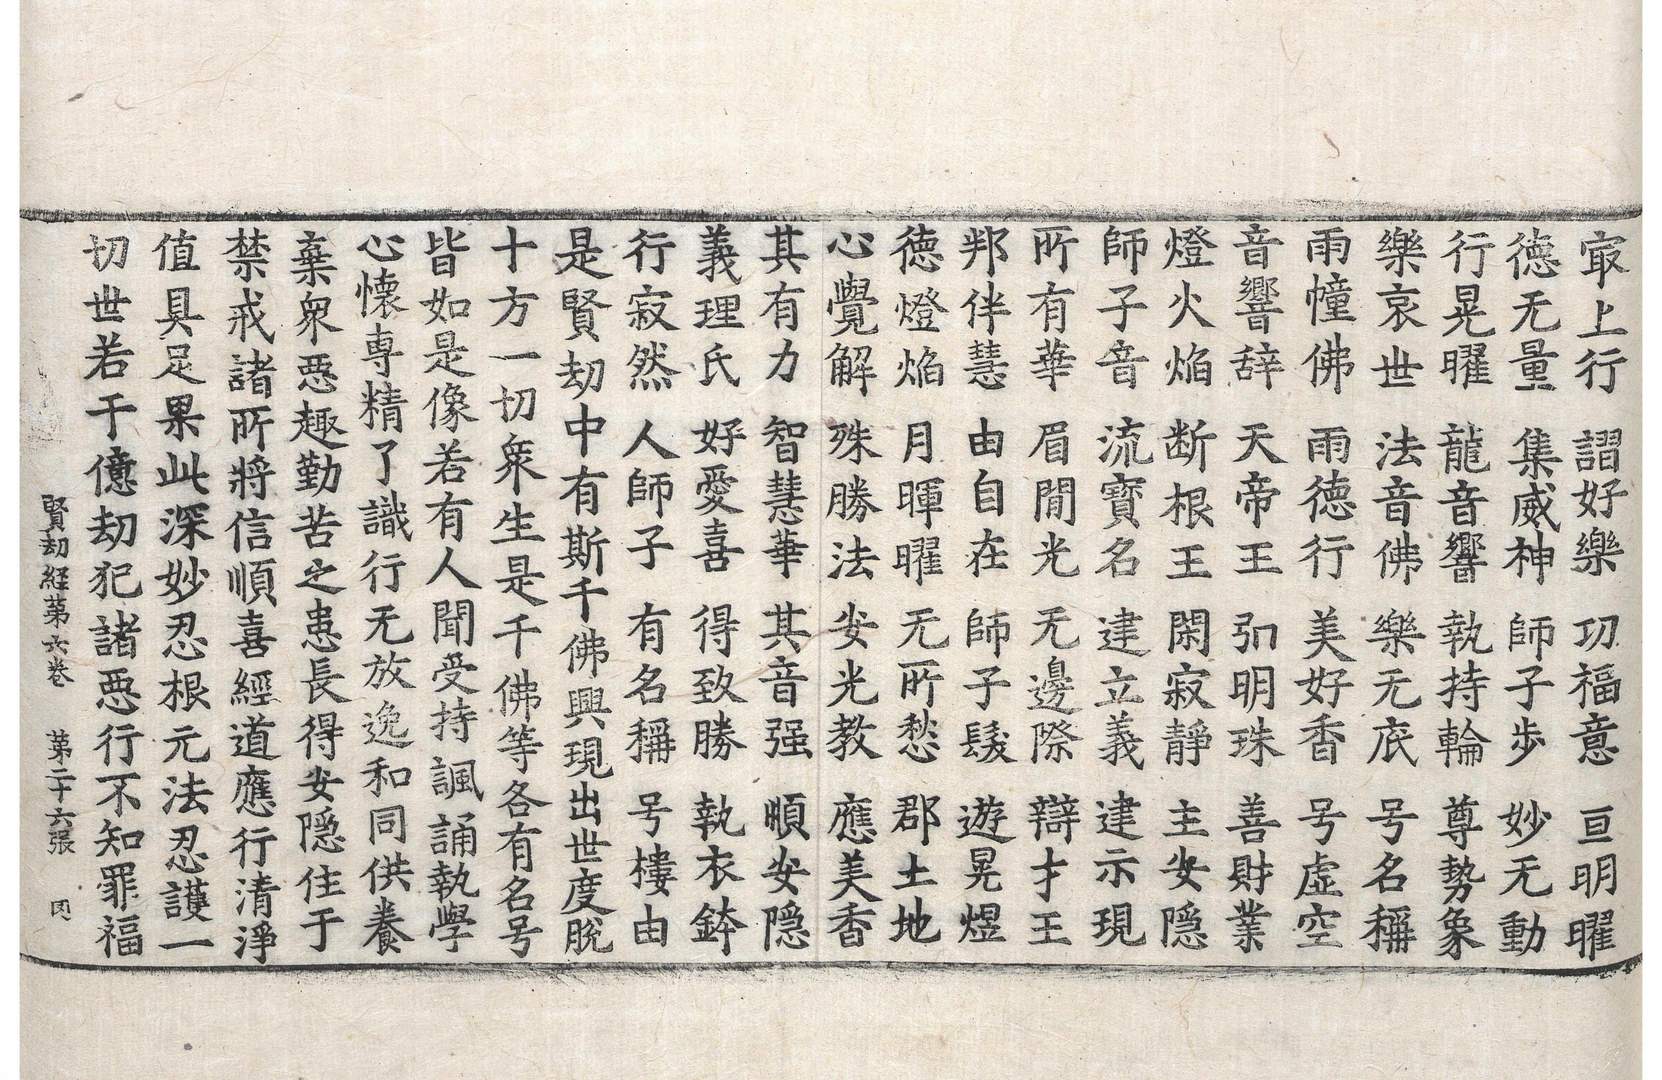 冣上行 謵好樂 功福意 亘明曜
德无量 集威神 師子步 妙无動
行晃曜 龍音響 執持輪 尊勢象
樂哀世 法音佛 樂无底 号名稱
雨幢佛 雨德行 美好香 号虛空
音響辞 天帝王 引明珠 善財業
燈火焰 断根王 閑寂靜 主安隱
師子音 流寶名 建立義 建示現
所有華 眉閒光 无邊際 辯才王
邦伴慧 由自在 師子髮 遊晃煜
德燈焰 月暉曜 无所愁 郡土地
心覺解 殊勝法 安光教 應美香
其有力 智慧華 其音强 順安隱
義理氏 好愛喜 得致勝 執衣鉢
行寂然 人師子 有名稱 号樓由
是賢劫中有斯千佛興現出世度脫
十方一切衆生是千佛等各有名号
皆如是像若有人聞受持諷誦執學
心懷專精了識行无放逸和同供養
棄衆惡趣勤苦之患長得安隱住于
禁戒諸所將信順喜經道應行清淨
值具足果此深妙忍根元法忍護一
切世若千億劫犯諸惡行不知罪福
賢劫経苐六卷 苐二十六張